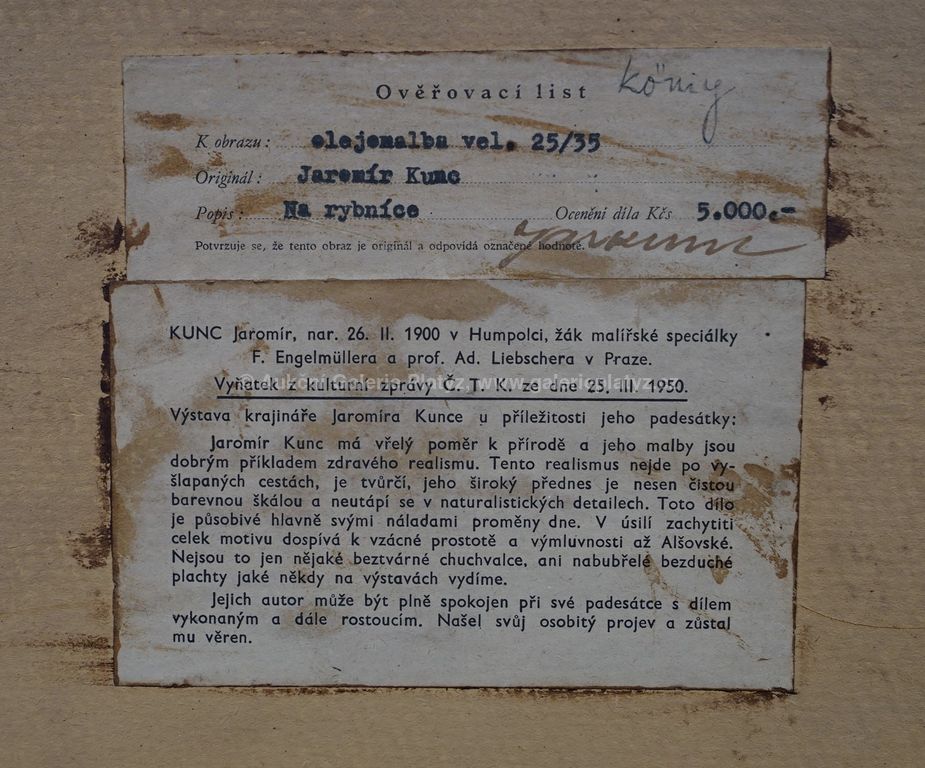 Ověřovací list
König
K obrazu: olejomalba vel. 25/35
Originál: Jaromír Kunc
Popis: Na rybníce Ocenění díla Kčs 5.000.-
Potvrzuje se, že tento obraz je originál a odpovídá označené hodnotě.
KUNC Jaromír, nar. 26. II. 1900 v Humpolci, žák malířské speciálky
F. Engelmüllera a prof. Ad. Liebschera v Praze.
Vyňatek z kulturní zprávy Č. T. K. ze dna 25. III. 1950.
Výstava krajináře Jaromíra Kunce u příležitosti jeho padesátky:
Jaromír Kunc má vřelý poměr k přírodě a jeho malby jsou
dobrým příkladem zdravého realismu. Tento realismus nejde po vy-
šlapaných cestách, je tvůrčí, jeho široký přednes je nesen čistou
barevnou škálou a neutápí se v naturalistických detailech. Toto dílo
je působivé hlavně svými náladami proměny dne. V úsilí zachytiti
celek motivu dospívá k vzácné prostotě a výmluvnosti až Alšovské.
Nejsou to jen nějaké beztvárné chuchvalce, ani nabubřelé bezduché
plachty jaké někdy na výstavách vydíme.
Jejich autor může být plně spokojen při své padesátce s dílem
vykonaným a dále rostoucím. Našel svůj osobitý projev a zůstal
mu věren.